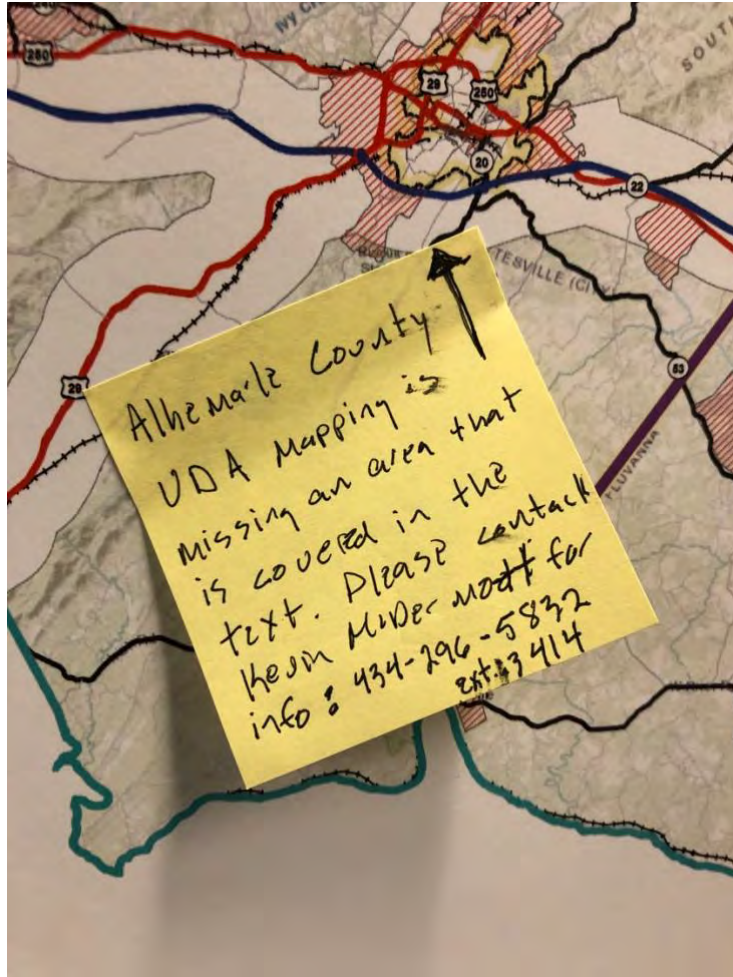 250
IVY
SOUT
29
250
20
22
TESVILLE (CITY)
29
53
FLUVANNA
Albemarle County
UDA Mapping is
missing an area that
is covered in the
text. Please contact
Kevin McDermott for
info: 434-296-5832
ext. 3414